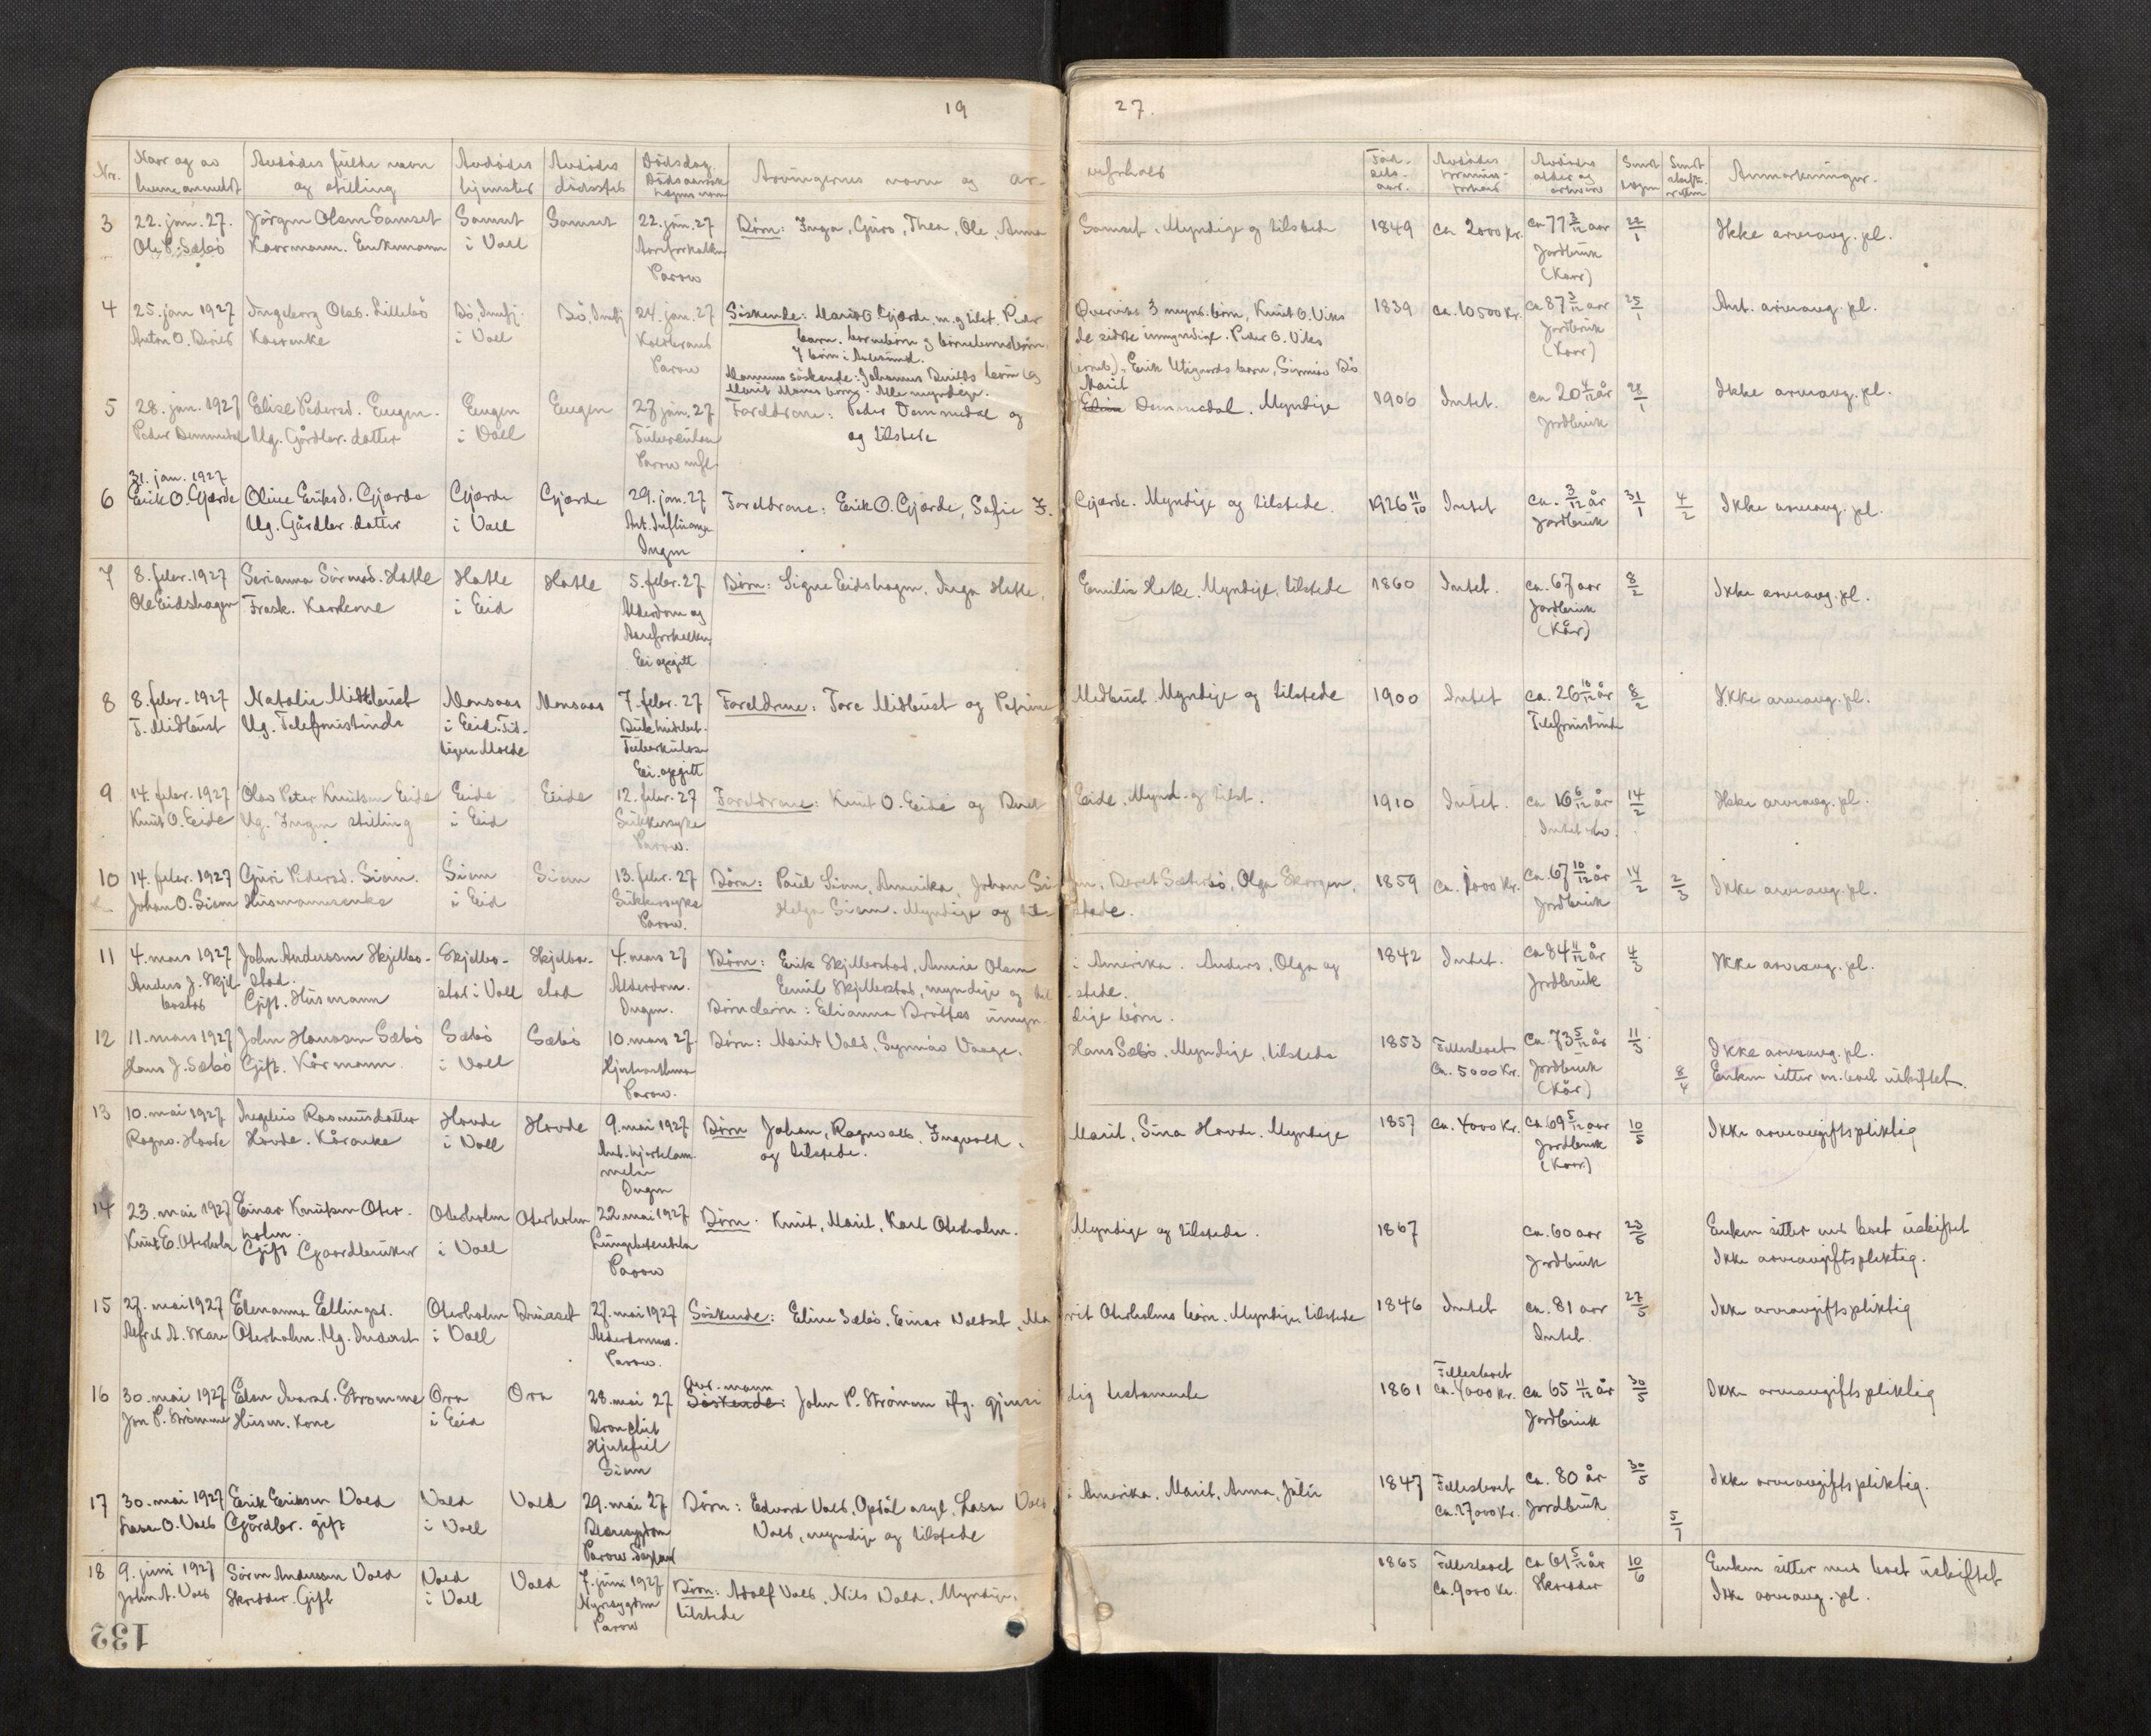 19
27.
Nr.
Naar og av hvem anmeldt
Avdødes fulde navn og stilling
Avdødes hjemsted
Avdødes dødssted
Dødsdag. Dødsaarsak. Lægens navn
Arvingernes navn og ar-
veforhold
Fød-sels-aar.
Avdødes formues-forhold
Avdødes alder og erhverv
Sendt
Sendt
Anmærkninger.
3
22. jan. 27.
Ole P. Sæbø
Jørgen Olsen Samset
Kaarmann. Enkemann
Samset
i Voll
Samset
22. jan. 27
Aareforkalkn.
Parow
Børn: Inga, Guro, Thea, Ole, Anna
Samset. Myndige og tilstede
1849
ca 2000 kr.
ca 77 3/12 aar
Jordbruk
(Kaar)
22/1
Ikke arveavg. pl.
4
25. jan 1927
Ingeborg Olsd. Lillebø
Kaarenke
Bø, Innfj.
i Voll
Bø, Innfj
24. jan. 27
Koldbrand
Parow
Søskende: Marit O Gjærde, m. og tilst. Peder
barn. barnebørn og barnebarnsbørn.
7 børn i Aalesund.
3 mynd. børn, Knut O. Viks
de sidste umyndige. Peder O. Viks
Erik Utigards børn, Bø
1839
ca. 10500 kr.
ca 87 3/12 aar
Jordbruk
(Kaar)
25/1
Ant. arveavg. pl.
5
28. jan. 1927
Elise Pedersd. Eugen.
Ug. Gårdbr. datter
Eugen
i Voll
Eugen
27 jan. 27
Parow
Foreldrene: Peder Demmedal og
Marit
Demmedal. Myndige
og tilstede
1906
Intet.
ca 20 4/12 år
Jordbruk
28/1
Ikke arveavg. pl.
6
31. jan. 1927
Erik O. Gjærde
Oline Eriksd. Gjærde
Ug. Gårdbr. datter
Gjærde
i Voll
Gjærde
29. jan. 27
Ant. Influensa
Ingen
Foreldrene: Erik O. Gjærde, Sofie J.
Gjærde. Myndige og tilstede.
1926 11/10
Intet
ca. 3/12 år
Jordbruk
31/1
4/2
Ikke arveavg. pl.
7
8. febr. 1927
Ole Eidshagen
Serianna Sørmod. Hatle
Frask. Kaarkone
Hatle
i Eid
Hatle
5. febr. 27
Alderdom og
Aareforkalkn.
Ei opgitt
Børn: Signe Eidshagen, Inga Hatle,
Emilie Hatle. Myndige, tilstede
1860
Intet.
ca. 67 aar
Jordbruk
(Kår)
8/2
Ikke arveavg. pl.
8
8. febr. 1927
T. Midtbust
Natalie Midtbust
Ug. Telefonistinde
Monsaas
i Eid. Tid-
ligere Molde
Monsaas
7. febr. 27
Tuberkulose
Ei. opgitt
Foreldrene: Tore Midtbust og Petrine
Midtbust. Myndige og tilstede
1900
Intet
ca. 26 10/12 år
Telefonistinde
8/2
Ikke arveavg. pl.
9
14. febr. 1927
Knut O. Eide
Olav Peter Knutsen Eide
Ug. Ingen stilling
Eide
i Eid
Eide
12. febr. 27
Sukkersyke
Parow.
Foreldrene: Knut O. Eide og Beret
Eide. Mynd. og tilst.
1910
Intet.
ca 16 6/12 år
14/2
Ikke arveavg. pl.
10
14. febr. 1927
Johan O. Siem
Guri Pedersd. Siem.
Husmannsenke
Siem
i Eid
Siem
13. febr. 27
Sukkersyke
Parow.
Børn: Paul Siem, Amerika, Johan Si-
em, Beret Sæterbø, Olga Skorgen,
Helga Siem. Myndige og til-
stede.
1859
ca. 1000 kr.
ca. 67 10/12 år
Jordbruk
14/2
2/3
Ikke arveavg. pl.
11
4. mars 1927
Anders J. Skjel-
bostad
John Anderssen Skjelbo-
stad.
Gift. Husmann
Skjelbo-
stad i Voll
Skjelbo-
stad
4. mars 27
Alderdom.
Ingen.
Børn: Erik Skjelbostad, Annie Olsen
i Amerika. Anders, Olga og
Emil Skjelbostad, myndige og til
-stede.
Barnebørn: Elianna Bratfos umyn-
dige børn.
1842
Intet.
ca 84 11/12 år
Jordbruk
4/3
Ikke arveavg. pl.
12
11. mars 1927
Hans J. Sæbø
John Hanssen Sæbø
Gift. Kårmann.
Sæbø
i Voll
Sæbø
10. mars 27.
Hjerteasthma
Parow.
Børn: Marit Vold, Synnøv Vaage.
Hans Sæbø. Myndige, tilstede
1853
Fellesboet
ca. 5000 kr.
ca. 73 5/12 år
Jordbruk
(Kår)
11/3
8/4
Ikke arveavg. pl.
Enken sitter m. boet uskiftet.
13
10. mai 1927
Ragnv. Hovde
Ingebor Rasmusdatter
Hovde. Kårenke
Hovde
i Voll
Hovde
9. mai 1927
Ant. hjertelam-
melse
Ingen
Børn Johan, Ragnvald, Ingvald,
Marit, Sina Hovde. Myndige
og tilstede.
1857
ca. 4000 kr.
ca 69 5/12 aar
Jordbruk
(Kaar)
10/5
Ikke arveavgiftspliktig
14
23. mai 1927
Knut E. Oterholm
Einar Knutsen Oter-
holm.
Gift Gaardbruker
Oterholm
i Voll
Oterholm
22 mai 1927
Lungebetendelse
Parow
Børn. Knut, Marit, Karl Oterholm.
Myndige og tilstede.
1867
ca. 60 aar
Jordbruk
23/5
Enken sitter med boet uskiftet
Ikke arveavgiftspliktig.
15
27. mai 1927
Alfred A. Skare
Elenanna Ellingsd.
Oterholm. Ug. Inderst
Oterholm
i Voll
Bruaset
27. mai 1927
Parow.
Søskende: Eline Sæbø, Einar Voldset, Ma
rit Oterholms børn. Myndige, tilstede
1846
Intet
ca. 81 aar
Intet.
27/5
Ikke arveavgiftspliktig
16
30. mai 1927
Jon P. Strømme
Elen Ivarsd. Strømme
Husm. Kone
Ora
i Eid
Ora
28. mai 27
Bronchit
Hjertefeil
Siem
Søskende: John P. Strømme ifg. gjensi
dig testamente
1861
Fellesboet
ca. 4000 kr.
ca 65 11/12 år
Jordbruk
30/5
Ikke arveavgiftspliktig
17
30. mai 1927
Lasse O. Vold
Erik Eriksen Vold
Gårdbr. gift
Vold
i Voll
Vold
29. mai 27
Blæresygdom
Parow
Børn: Edvard Vold, Opdøl asyl, Lasse Vold
i Amerika, Marit, Anna, Julie
Vold, myndige og tilstede
1847
Fellesboet
ca. 17000 kr.
ca. 80 år
Jordbruk
30/5
5/7
Ikke arveavgiftspliktig.
18
9. juni 1927
John A. Vold
Søren Anderssen Vold
Skredder. Gift
Vold
i Voll
Vold
7. juni 1927
Nyresygdom
Parow
Børn: Adolf Vold, Nils Vold. Myndige,
tilstede
1865
Fellesboet
ca. 9000 kr.
ca 61 5/12 år
Skredder
10/6
Enken sitter med boet uskiftet
Ikke arveavg. pl.
132